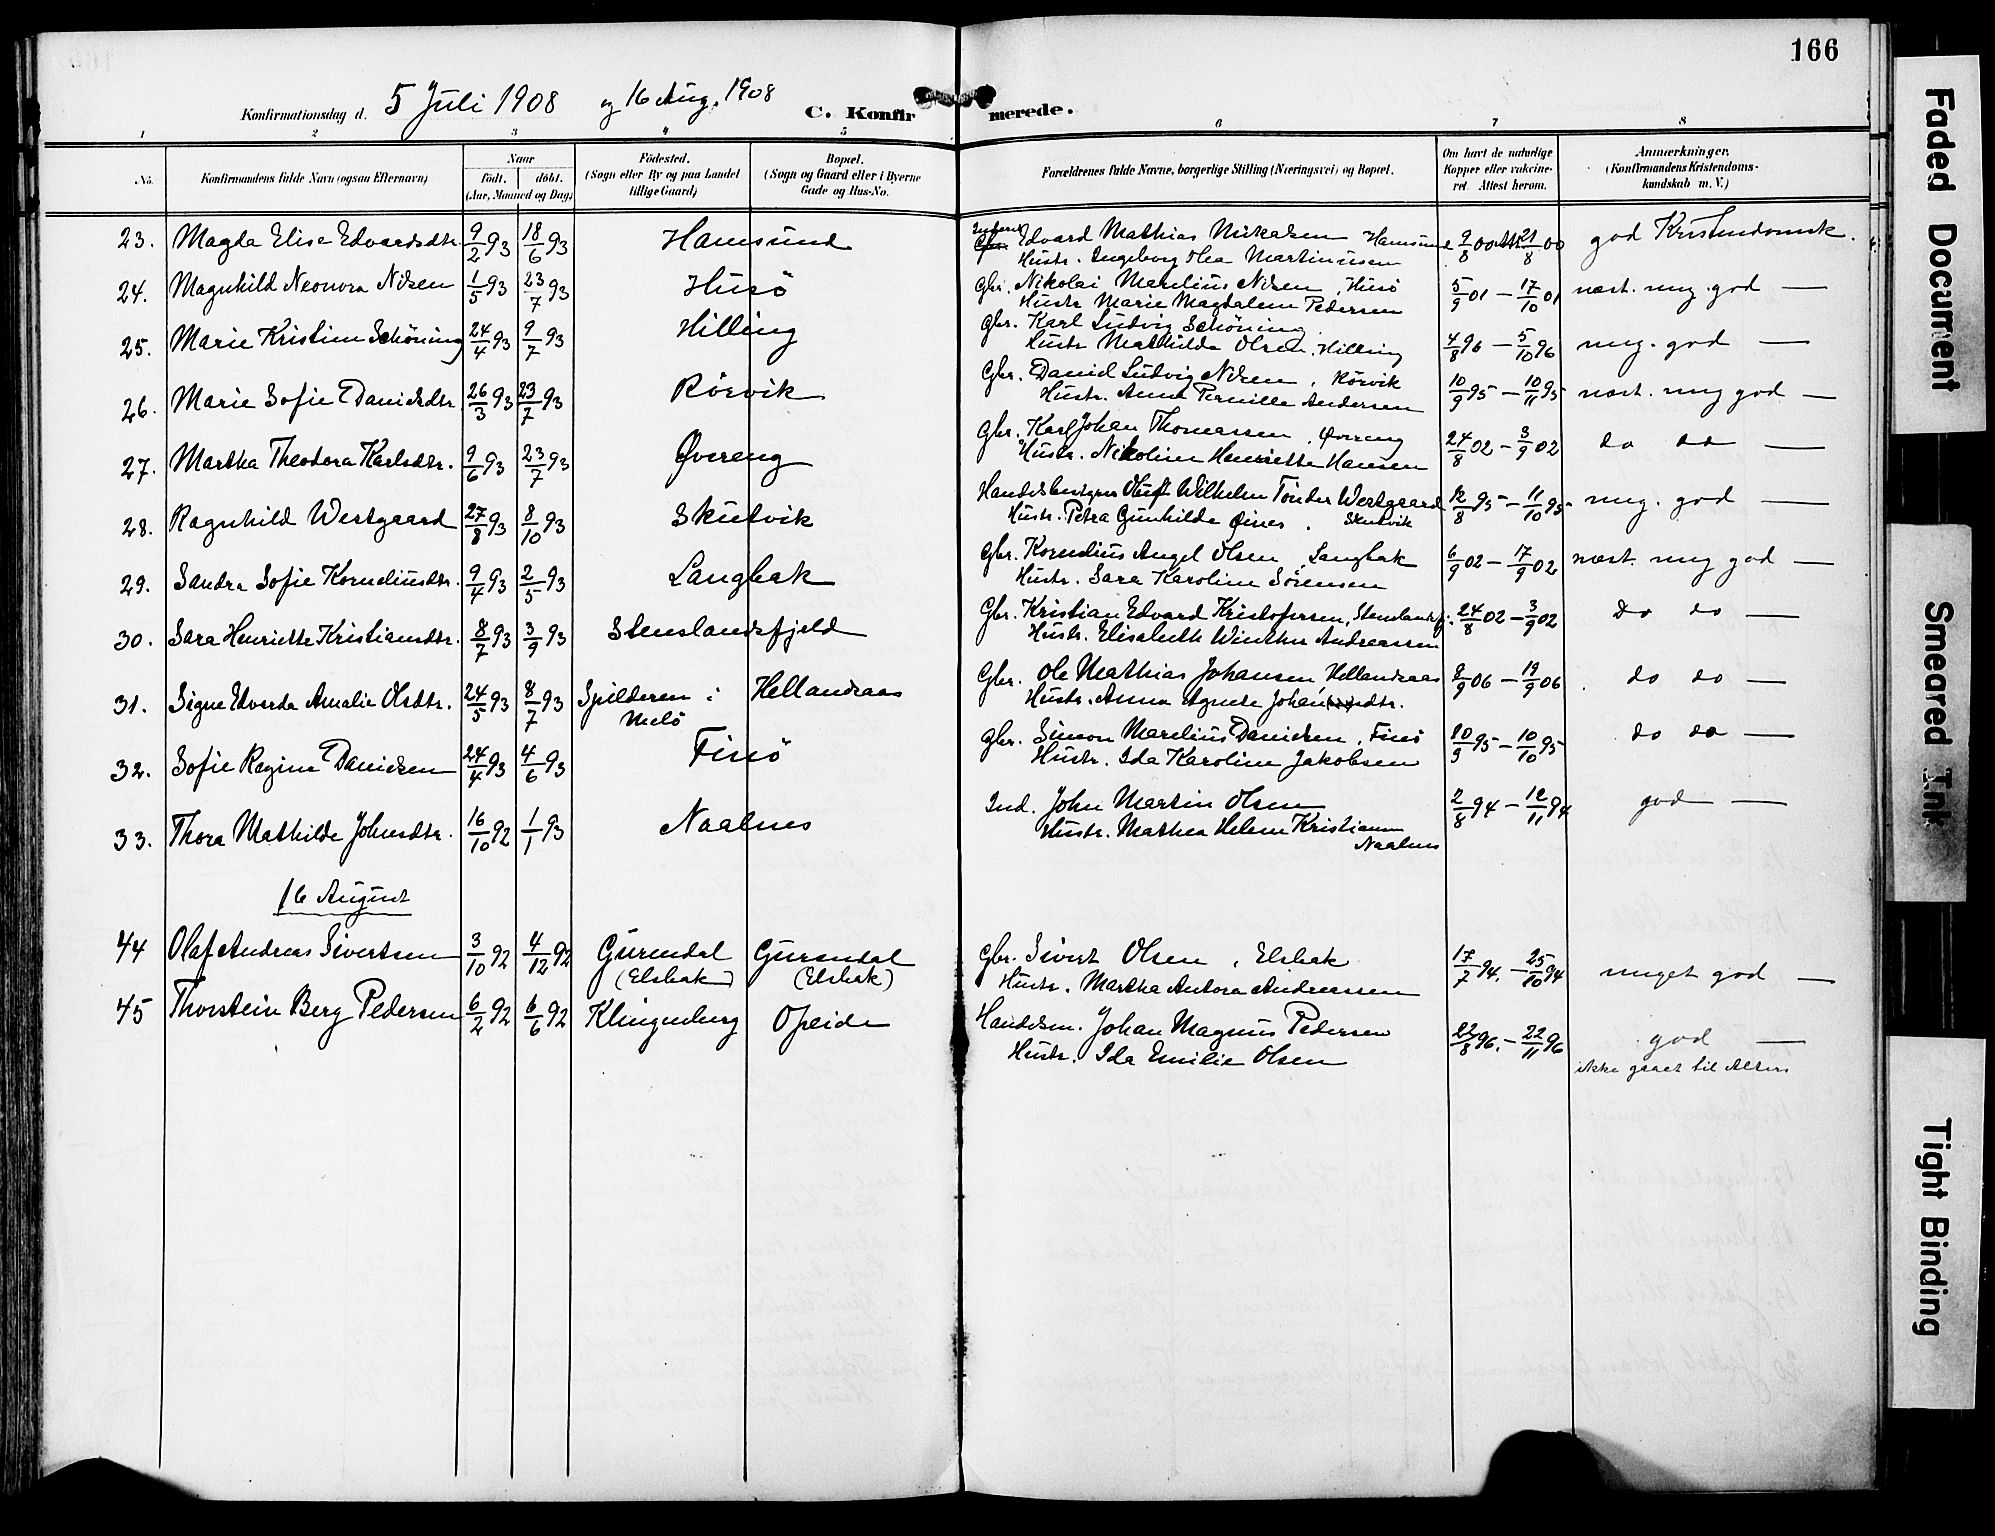 166
Konfirmationsdag d. 5 Juli 1908 og 16 Aug. 1908 C. Konfirmerede.
1 2 3 4 5 6 7 8
No. Konfirmandens fulde Navn (ogsaa Efternavn) Naar födt. döbt. (Aar, Maaned og Dag) Födested. (Sogn eller By og paa Landet tillige Gaard) Bopæl. (Sogn og Gaard eller i Byerne Gade og Hus-No. Forældrenes fulde Navne, borgerlige Stilling (Næringsvei) og Bopæl. Om havt de naturlige Kopper eller vakcineret. Attest herom. Anmærkninger. (Konfirmandens Kristendomskundskab m. V.)
23. Magda Elise Edvardsdtr. 9/2 93 18/6 93 Hamsund Edvard Mathias Mikalsen Hamsund 9/8 00 Att. 21/8 00 god Kristendomsk.
Hustr. Ingeborg Olea Martinusen
24. Magnhild Neonora Nilsen 1/5 93 23/7 93 Husö Gbr. Nikolai Marelius Nilsen, Husö 5/9 01 — 17/10 01 næst. meg. god —
Hustr. Marie Magdalena Pedersen
25. Marie Kristine Schöning 24/4 93 9/7 93 Hilling Gbr. Karl Ludvig Schöning 4/8 96 — 5/10 96 meg. god —
Hustr. Mathilda Olsen, Hilling
26. Marie Sofie Danielsdtr. 26/3 93 23/7 93 Rörvik Gbr. Daniel Ludvig Nilsen, Rörvik 10/9 95 — 10/11 95 næst. meg god —
Hustr. Anna Pernille Andersen
27. Martha Theodora Karlsdtr. 9/6 93 23/7 93 Øvereng Gbr. Karl Johan Thomassen, Øvereng 24/8 02 — 3/9 02 do do —
Hustr. Nikoline Henriette Hansen
28. Ragnhild Westgaard 27/8 93 8/10 93 Skutvik Oluf Wilhelm Tönder Westgaard 12/8 95 — 11/10 95 meg. god —
Hustr. Petra Gunhilde Skutvik
29. Sandra Sofie Korneliusdtr. 9/4 93 2/5 93 Langbak Gbr. Kornelius Angel Olsen, Langbak 6/9 02 — 17/9 02 næst. meg god —
Hustr. Sara Karoline Sørensen
30. Sara Henriette Kristiansdtr. 8/7 93 3/9 93 Stenslandsfjeld Gbr. Kristian Edvard Kristofersen, Stenslandsfj. 24/8 02 — 3/9 02 do do —
Hustr. Elisabeth Winther Andreassen
31. Signe Edvarda Amalie Olsdtr. 24/5 93 8/7 93 Spilderen i Hellandsaas Gbr. Ole Mathias Johansen Hellandsaas 8/9 06 — 19/9 06 do do —
Melö Hustr. Anna Agnete
32. Sofie Regine Danielsen 24/4 93 4/6 93 Finö Gbr. Simon Marelius Danielsen, Finö 10/9 95 — 10/10 95 do do —
Hustr. Ida Karoline Jakobsen
33. Thora Mathilde Johnsdtr. 16/10 92 1/1 93 Naalnes Ind. John Martin Olsen 2/8 94 — 12/11 94 god —
Hustr. Mathea Helene Kristiansen
Naalnes
16 August
44 Olaf Andreas Sivertsen 3/10 92 4/12 92 Gurendal Gurendal Gbr. Sivert Olsen, Elsbak 17/7 94. — 25/10 94 meget god —
(Elsbak) (Elsbak) Hustr. Martha Antora Andreassen
45 Thorstein Berg Pedersen 6/2 92 6/6 92 Klingenberg Opeide Handelsm. Johan Magnus Pedersen 22/8 96. — 22/11 96 god —
Hustr. Ida Emilie Olsen ikke gaaet til Alters
Faded Document
Smeared Ink
Tight Binding